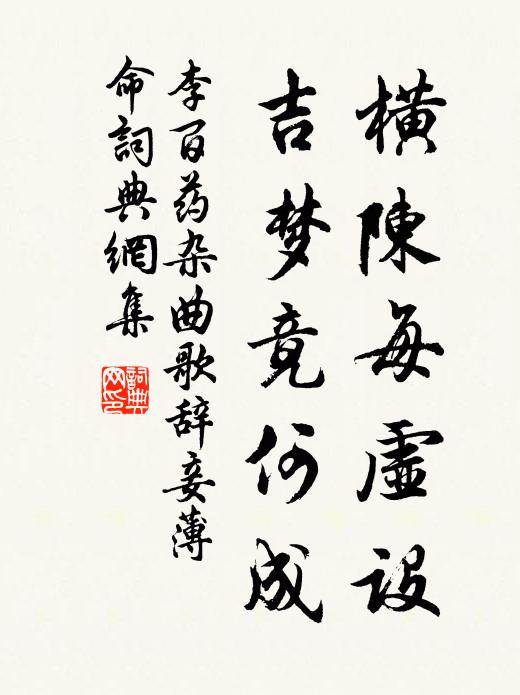 橫陳每虛設
吉梦竟何成
李百药杂曲歌辞妾薄
命詞典網集
詞典
网印